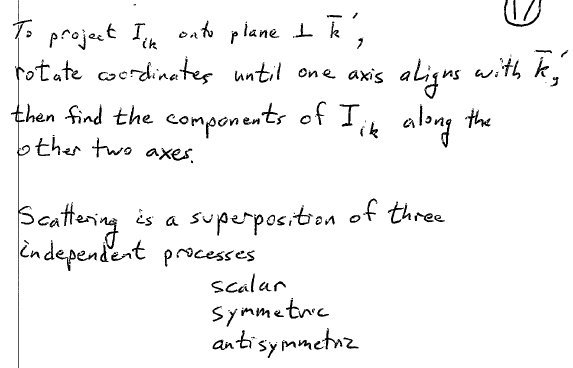 17
To project I_ik onto plane ⊥ k̄′,
rotate coordinates until one axis aligns with k̄′,
then find the components of I_ik along the
other two axes.
Scattering is a superposition of three
independent processes
scalar
symmetric
antisymmetric